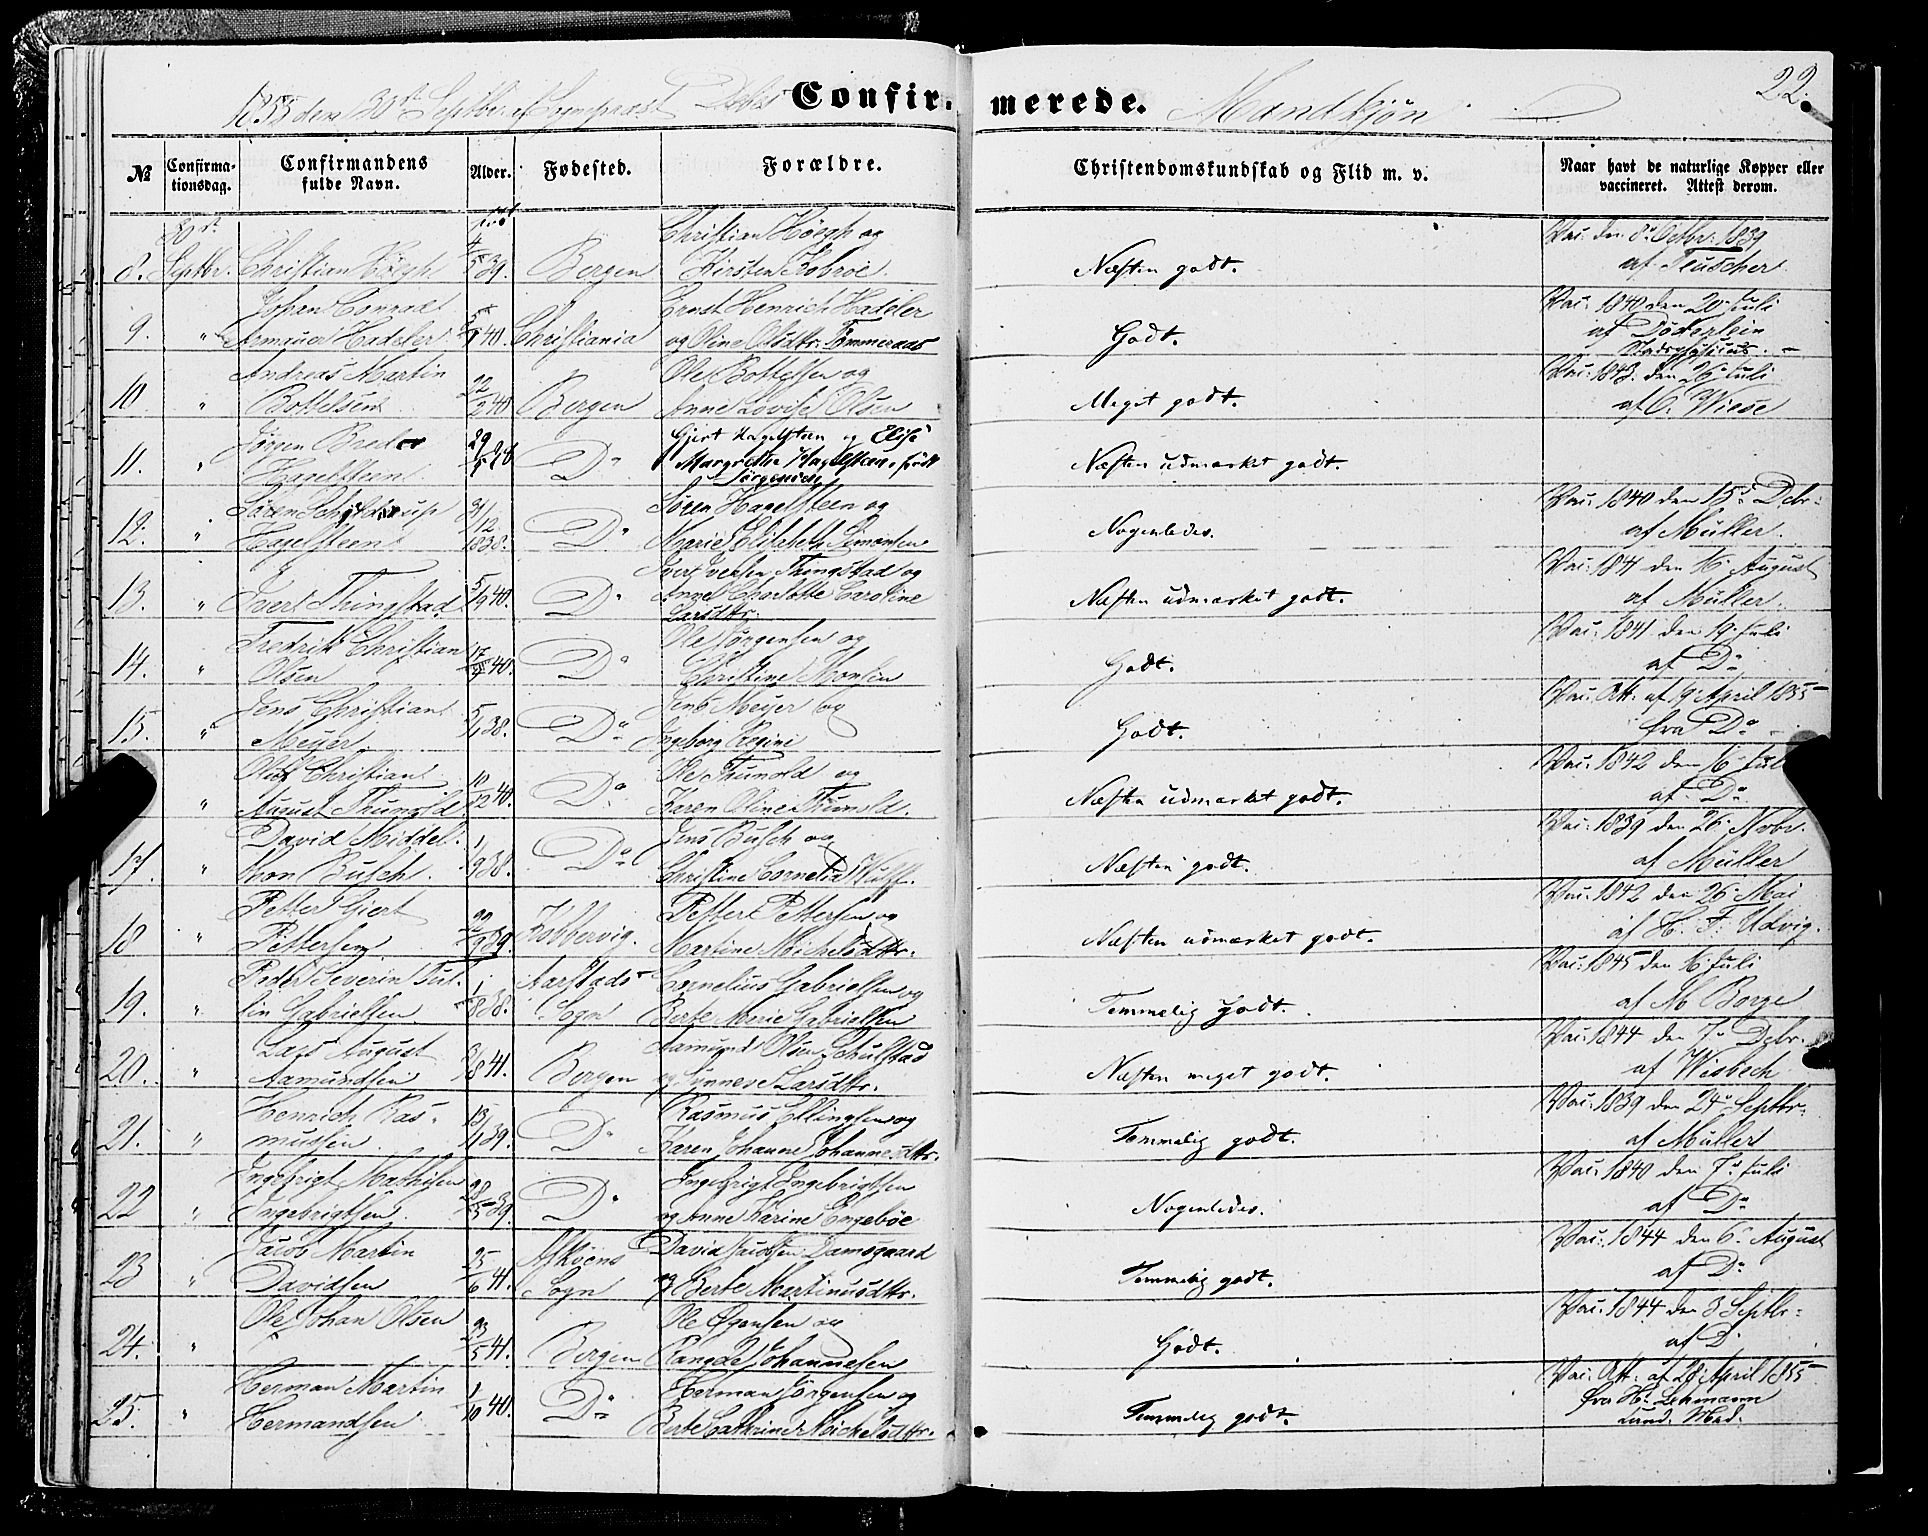 1855 den 30te Septbr. af Sognepræst Confirmerede. Mandkjøn 22.
№ Confirmationsdag. Confirmandens fulde Navn. Alder. Fødested. Forældre. Christendomskundskab og Flid m. v. Naar havt de naturlige Kopper eller vaccineret. Attest derom.
30te Christian Høegh og Vac. den 8de Octbr. 1839
8. Septbr. Christian Høegh 4/5 39. Bergen Kirsten Kobroe. Næsten godt. af Teuscher
Johan Conrad Ernst Henrich Hadeler Vac. 1840 den 20 Juli
9. " Armauer Hadeler 40. Christiania og Oline Olsdtr. Tømmeraas Godt. af Döderlein
Stadsphysicus.
Andreas Martin Ole Bottelsen og Vac. 1843 den 26 Juli
10 " Bottelsen 22/2 40 Bergen Anne Lovise Olsen Meget godt. af C. Wiese
Jørgen Breder Gjert Hagelsteen og Elise
11. " Hagelsteen Do Margrethe Hagelsteen, født Næsten udmærket godt.
Jørgensen
Søren Schjelderup 31/12 Søren Hagelsteen og Vac. 1840 den 15de Debr.
12. " Hagelsteen 1838. Do Marie Elisabeth Simonsen Nogenledes. af Müller.
Ivert Iversen Thingstad og Vac. 1841 den 16 August
13. " Ivert Thingstad 5/9 40. Do Anne Charlotte Caroline Næsten udmærket godt. af Müller.
Larsdtr.
Fredrik Christian Ole Jørgensen og Vac. 1841 den 19 Juli
14. " Olsen 40. Do Christine Monsen Godt. af Do
Jens Christian Jens Meyer og Vac. Att. af 9 April 1855
15. " Meyer. 5/1 38. Do Ingeborg Regine Godt. fra Do
Oluf Christian Ole Thumold og Vac. 1842 den 16 Jul
" August Thumold. 10/12 40. Do Karen Oline Thumold. Næsten udmærket godt. af Do
David Middel- Jens Busch og Vac. 1839 den 26 Novbr.
17. " thon Busch. 1/9 38. Do Christine Cornelia Wulff. Næsten godt. af Müller
Petter Giert Petter Pettersen og Vac. 1842 den 26 Mai
18 " Pettersen 22/9 39. Kobbervig. Martine Michelsdttr. Næsten udmærket godt. af H. F. Udvig.
Peder Severin Tul- Aarstads Cornelius Gabrielsen og Vac. 1845 den 16 Juli
19. " lin Gabrielsen. 1/8 38. Sogn Berte Marie Gabrielsen Temmelig godt. af M Borge
Lars August Aamund Olsen Schulstad Vac. 1844 den 7de Debr.
20. " Aamundsen 3/8 41. Bergen og Synneve Larsdttr. Næsten meget godt. af Wisbech
Henrich Ras- Rasmus Ellingsen og Vac. 1839 den 24de Septbr.
21. " mussen 13/1 39. Do Karen Johanne Johannesdttr. Temmelig godt. af Müller
Ingebrigt Mathisen Ingebrigt Ingebrigtsen Vac. 1840 den 7de Juli
22 " Ingebrigtsen. 28/5 39. Do og Anne Karine Engebøe Nogenledes. af Do
Jacob Martin Askøens David Jacobsen Damsgaard Vac. 1844 den 6. August
23 " Davidsen 25/6 41. Sogn og Berte Martinusdttr. Temmelig godt. af Do
Ole Johan Olsen Ole Ørgensen og Vac. 1844 den 3 Septbr.
24. " 23/5 41. Bergen Rangde Johannesen Godt. af D
Herman Martin Herman Jørgensen og Vac. Att. af 28 April 1855
25. " Hermandsen 1/10 40. Do Berte Cathrine Mickelsdttr. Temmelig godt. fra Hr. Lehmann
Cand. Med.